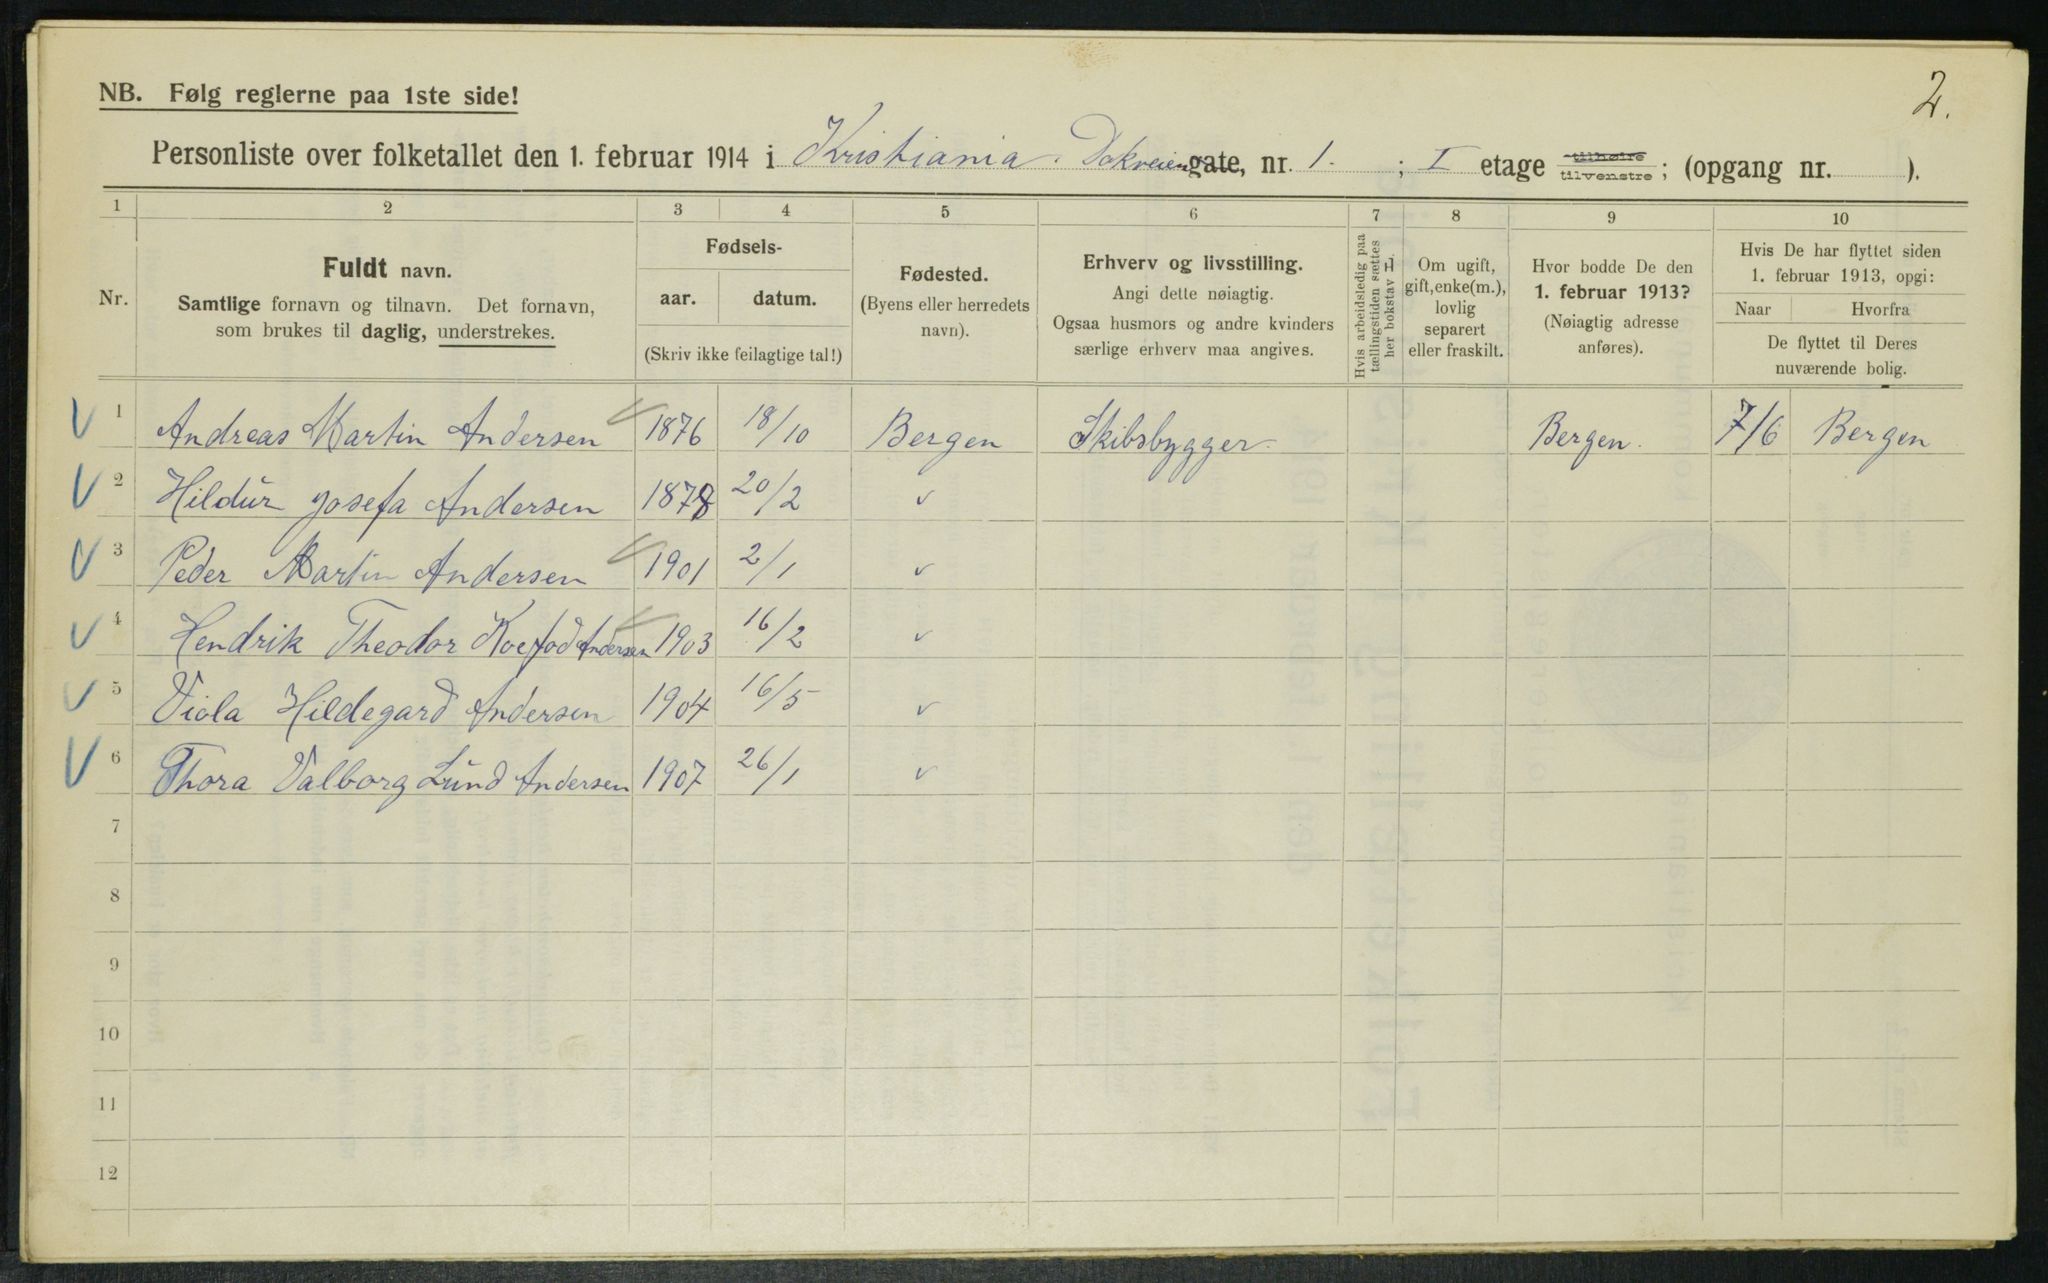 2.
NB. Følg reglerne paa 1ste side!
Personliste over folketallet den 1. februar 1914 i Kristiania. Dokveien gate, nr. 1. ; I etage tilhøire tilvenstre; (opgang nr. ).
1 2 3 4 5 6 7 8 9 10
Nr.
Fuldt navn.
Samtlige fornavn og tilnavn. Det fornavn,
som brukes til daglig, understrekes.
Fødsels-
aar. datum.
(Skriv ikke feilagtige tal!)
Fødested.
(Byens eller herredets
navn).
Erhverv og livsstilling.
Angi dette nøiagtig.
Ogsaa husmors og andre kvinders
særlige erhverv maa angives.
Hvis arbeidsledig paa
tællingstiden sættes
her bokstav L.
Om ugift,
gift, enke(m.),
lovlig
separert
eller fraskilt.
Hvor bodde De den
1. februar 1913?
(Nøiagtig adresse
anføres).
Hvis De har flyttet siden
1. februar 1913, opgi:
Naar Hvorfra
De flyttet til Deres
nuværende bolig.
1 Andreas Martin Andersen 1876 18/10 Bergen Skibsbygger Bergen. 7/6 Bergen
2 Hildur Josefa Andersen 1878 20/2 v
3 Peder Martin Andersen 1901 2/1 v
4 Hendrik Theodor Koefod Andersen 1903 16/2 v
5 Viola Hildegard Andersen 1904 16/5 v
6 Thora Valborg Lund Andersen 1907 26/1 v
7
8
9
10
11
12